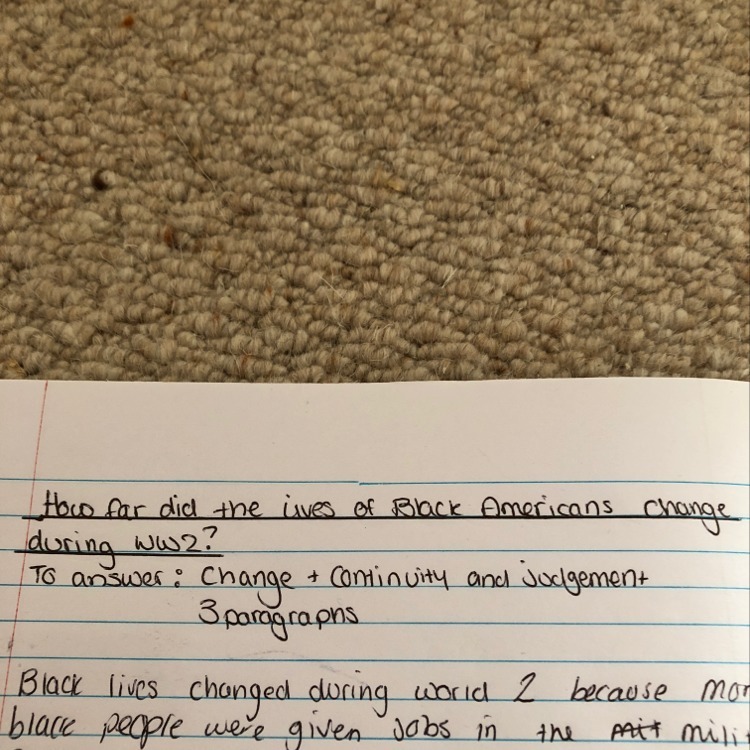 How far did the lives of Black Americans change
during WW2?
To answer: Change + Continuity and judgement
3 paragraphs
Black lives changed during world 2 because mor
black people were given jobs in the milit